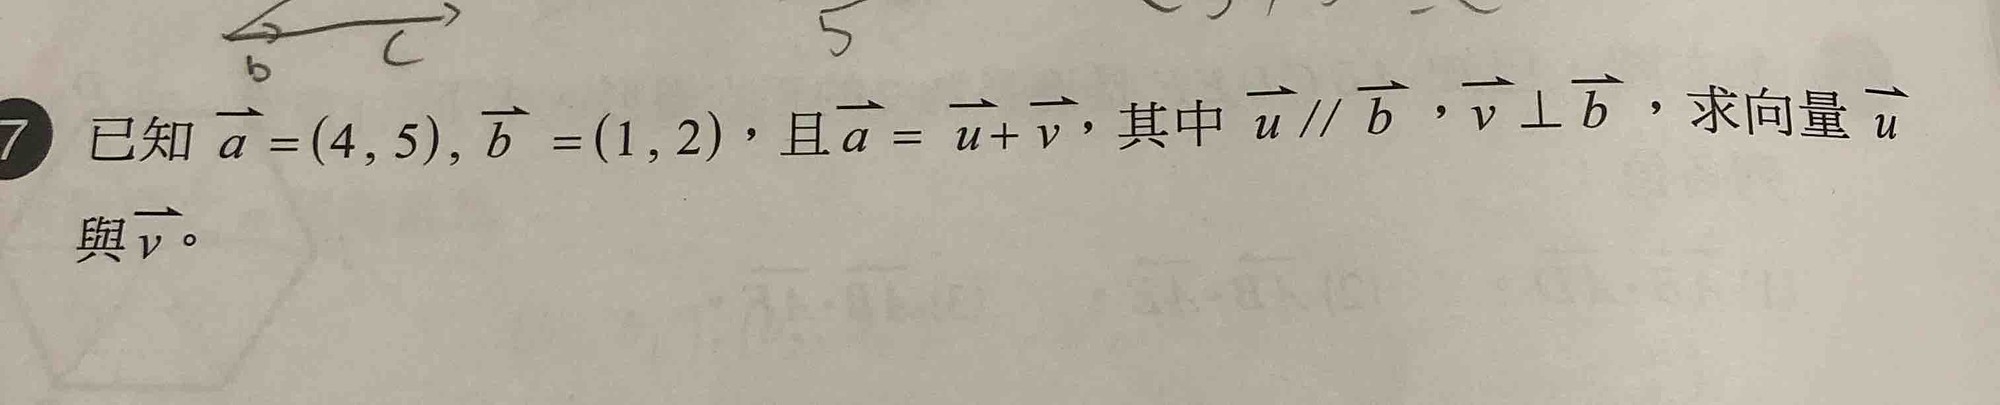 b
C
5
7 已知 $\overrightarrow{a}$ = (4, 5), $\overrightarrow{b}$ = (1, 2),且 $\overrightarrow{a}$ = $\overrightarrow{u}$ + $\overrightarrow{v}$,其中 $\overrightarrow{u}$ // $\overrightarrow{b}$,$\overrightarrow{v}$ ⊥ $\overrightarrow{b}$,求向量 $\overrightarrow{u}$
與 $\overrightarrow{v}$。